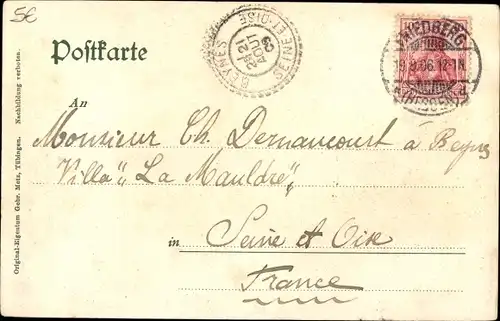 5€
Postkarte
BEYNES
21
AOUT
SEINE-ET-OISE
FRIEDBERG
An
Monsieur Ch. Dernancourt à Beynes
Villa "La Mauldre"
in Seine et Oise
France
Original-Eigentum Gebr. Metz, Tübingen. Nachbildung verboten.